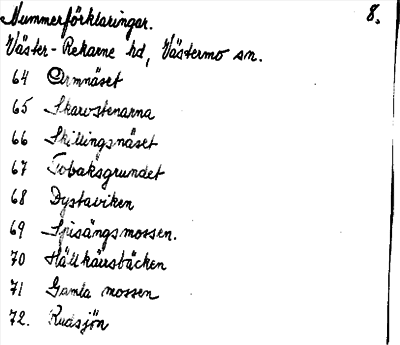 Nummerförklaringar. 8.
Väster-Rekarne hd, Västermo sn.
64 Ormnäset
65 Skarvstenarna
66 Skillingsnäset
67 Tobaksgrundet
68 Dystaviken
69 Spisängsmossen.
70 Hällkärrsbäcken
71 Gamla mossen
72. Rudsjön